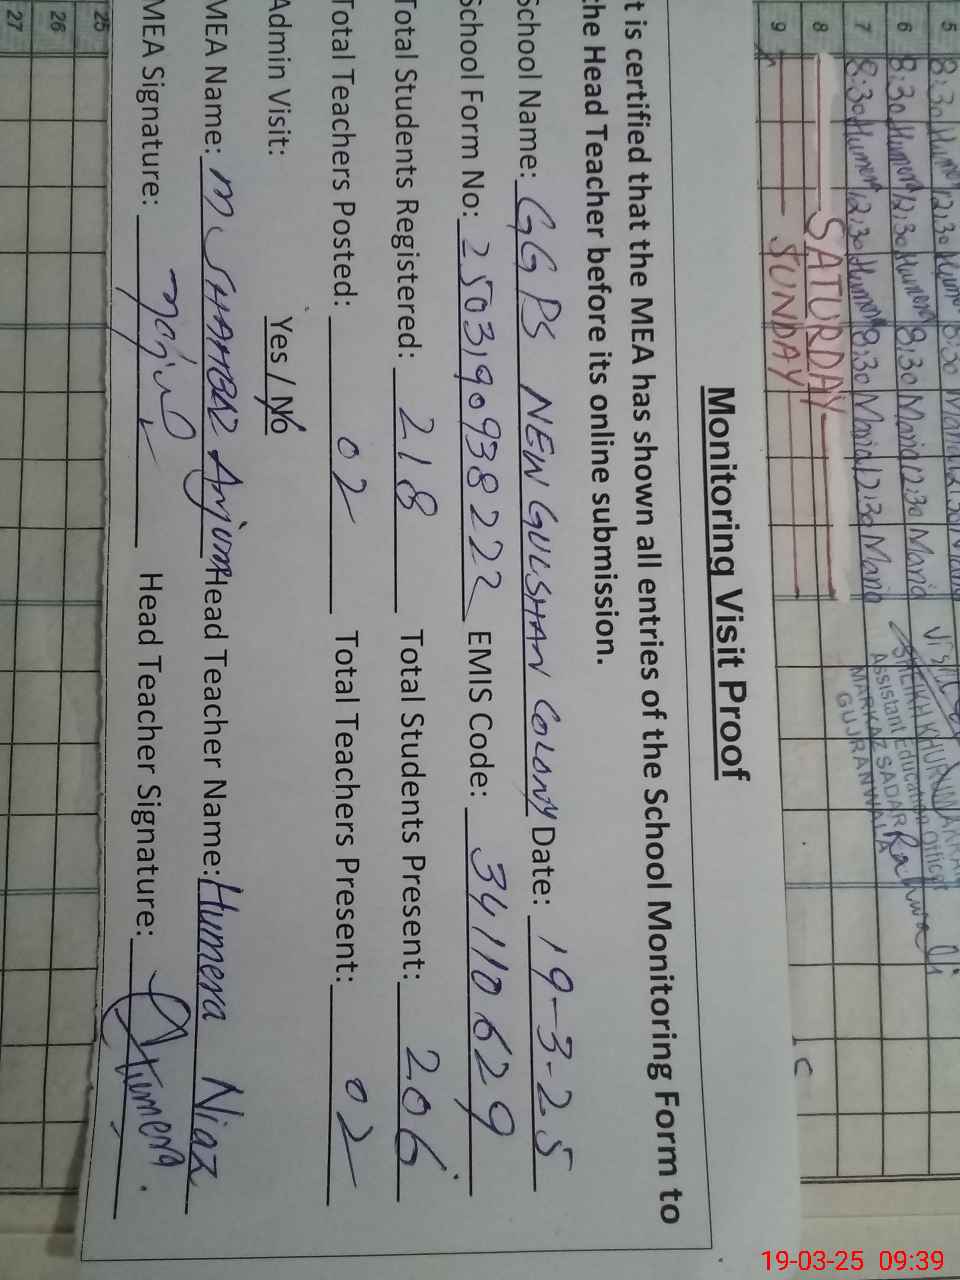 5 8:30 Humera 12:30 Humera 8:30 Maria 12:30 Maria
6 8:30 Humera 12:30 Humera 8:30 Maria 12:30 Maria
7 8:30 Humera 12:30 Humera 8:30 Maria 12:30 Maria
8 SATURDAY
9 SUNDAY
SHEIKH KHURUM
Assistant Education Officer
MARKAZ SADAR Rahwali
GUJRANWALA
Monitoring Visit Proof
t is certified that the MEA has shown all entries of the School Monitoring Form to
the Head Teacher before its online submission.
School Name: GGPS NEW GULSHAN COLONY Date: 19-3-25
School Form No: 2503190938222 EMIS Code: 34110629
Total Students Registered: 218 Total Students Present: 206
Total Teachers Posted: 02 Total Teachers Present: 02
Admin Visit: Yes / No
MEA Name: M Anjum Head Teacher Name: Humera Niaz
MEA Signature: Head Teacher Signature: Humera.
25
26
27
19-03-25 09:39